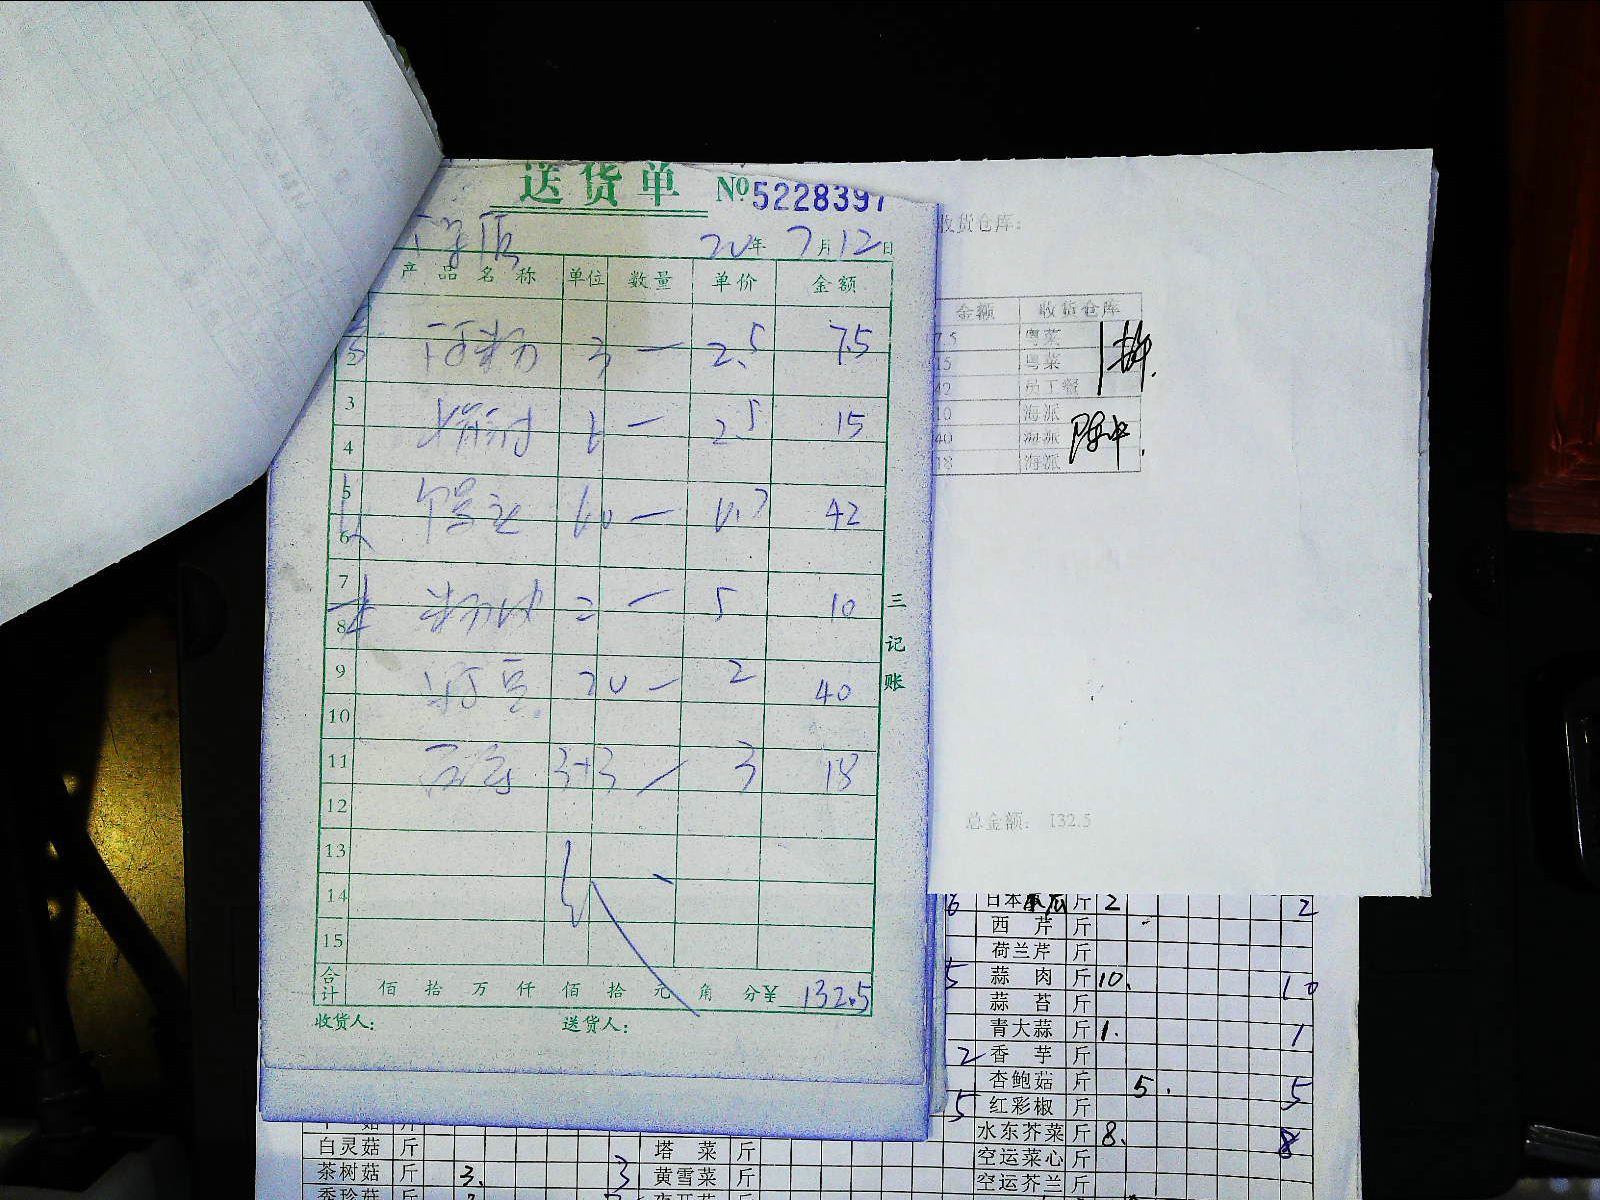 送货单 №5228397
20年 7月12日
产品名称 单位 数量 单价 金额
河粉 3 — 2.5 7.5
3
6 — 2.5 15
4
5
60 — 0.7 42
6
7
2 — 5 10
8
9 豆 20 — 2 40
10
11 3+3 3 18
12
13
14
15
合计 佰 拾 万 仟 佰 拾 元 角 分¥ 132.5
收货人: 送货人:
三记账
收货仓库:
金额 收货仓库
7.5 粤菜
15 粤菜
42 员工餐
10 海派
40 海派
18 海派
总金额: 132.5
6 日本 斤 2 2
西芹 斤
荷兰芹 斤
5 蒜肉 斤 10. 10
蒜苔 斤
青大蒜 斤 1. 1
2 香芋 斤
杏鲍菇 斤 5. 5
5 红彩椒 斤
水东芥菜 斤 8. 8
空运菜心 斤
空运芥兰 斤
白灵菇 斤 塔菜 斤
茶树菇 斤 3. 3 黄雪菜 斤
秀珍菇 斤